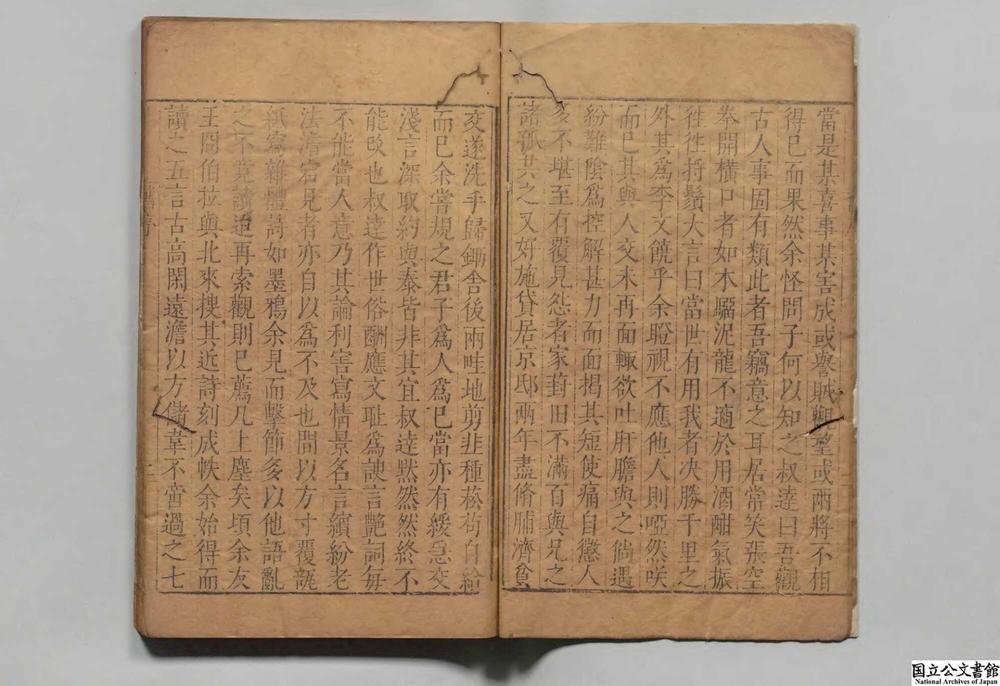 當是某喜事某害成或譽賊觀望或兩將不相
得已而果然余怪問子何以知之叔達曰吾觀
古人事固有類此者吾竊意之耳居常笑張空
拳開橫口者如木驅泥龍不適於用酒酣氣振
往往捋鬚大言曰當世有用我者決勝千里之
外其爲李文饒乎余瞪視不應他人則啞然咲
而已其與人交未再面輒欲吐肝膽與之倘遇
紛難陰爲控解甚力而面揭其短使痛自懲人
多不堪至有覆見怨者家封旧不滿百與兄之
諸孤共之又好施貸居京邸兩年盡脩脯濟貧
交遂洗手歸鋤舍後兩畦地剪韭種菘茍自給
而已余嘗規之君子爲人爲已當亦有緩急交
淺言深取約與奉皆非其宜叔達黙然然終不
能改也叔達作世俗酬應文耻爲諛言艶詞每
不能當人意乃其論利害寫情景名言繽紛老
法澹宕見者亦自以爲不及也間以方寸覆瓿
紙寫雜體詩如墨鴉余見而擊節多以他語亂
之不竟讀迨再索觀則已薦几上塵矣頃余友
王閬伯菈與北來搜其近詩刻成帙余始得而
讀之五言古高閑遠澹以方儲韋不啻過之七
国立公文書館
National Archives of Japan